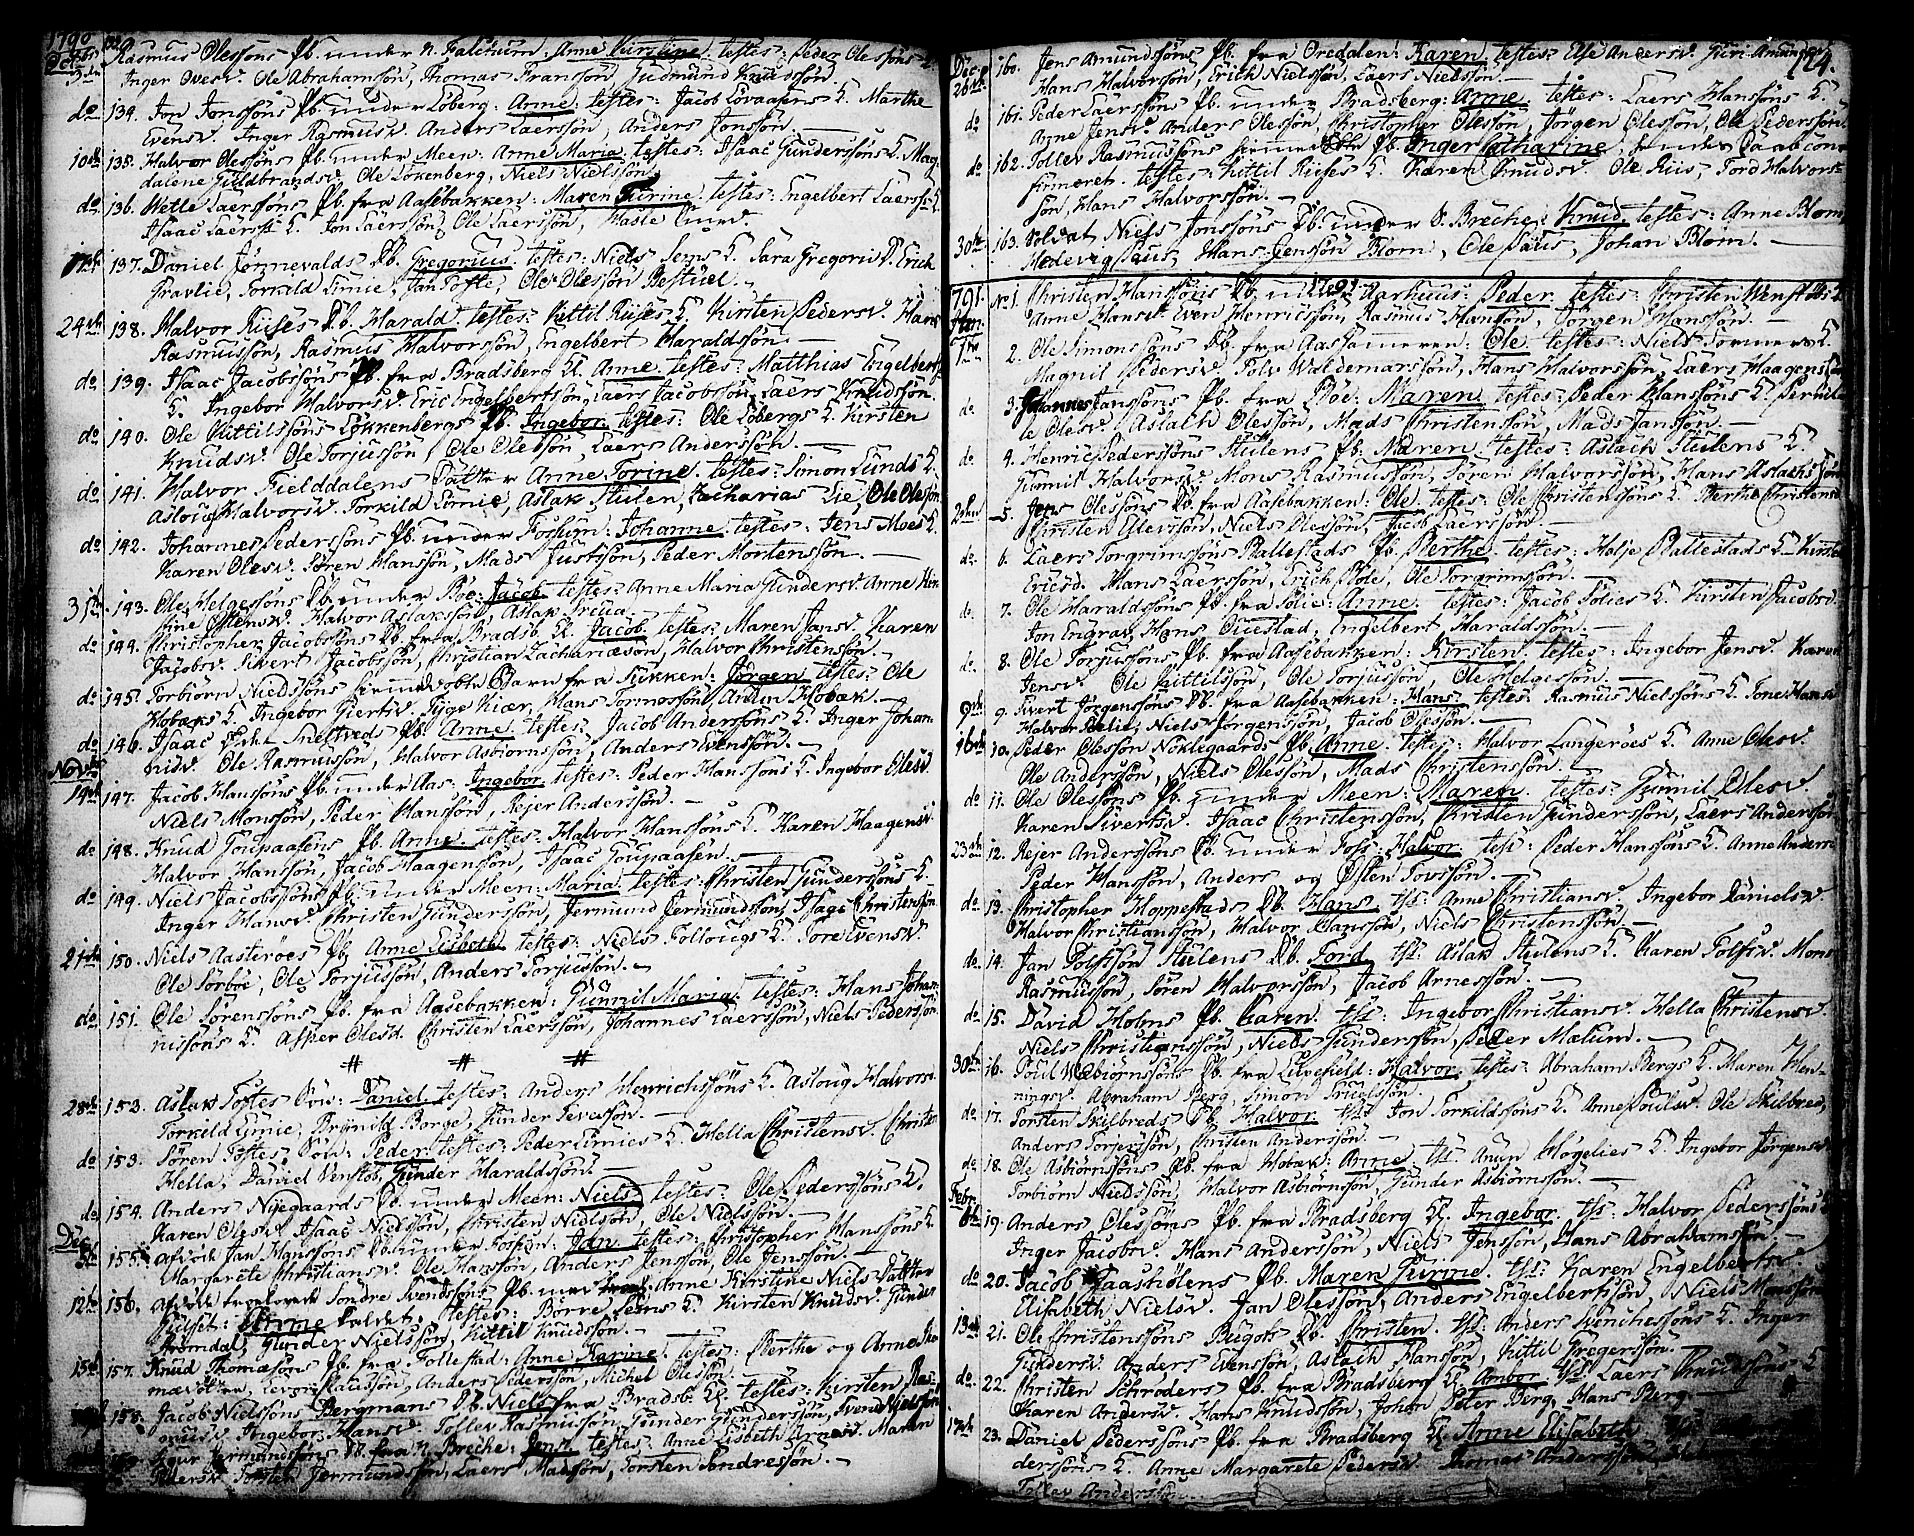 1790
Octbr Rasmus Olessöns Pb. under N. Falchum: Anne Kirstine. testes: Peder Olessöns
3die Inger Ovesd. Ole Abrahamsön, Thomas Fransön, Gudmund Knudssön.
do 134. Jon Jonssöns Pb. under Loberg: Anne. testes: Jacob Lovaasens K. Marthe
Evensd. Inger Rasmusd. Anders Laerssön, Anders Jonssön.
10de 135. Halvor Olessöns Pb. under Meen: Anne Maria. testes: Isaac Gunderssöns K. Mag
dalene Guldbrandsd. Ole Lökenberg, Niels Nielssön.
do 136. Wetle Laerssöns Pb. fra Aasebakken: Maren testes: Engelbert Laerss: K.
Isaac Laerss: K. Jon Laerssön, Ole Laerssön,
17de 137. Daniel Jönnevalds Pb. Gregorius. testes: Niels Sems K. Sara Gregorii D. Erich
Gravlie, Torkild Limie, Jan Tofte, Ole Olessön Bestuel.
24de 138. Halvor Riises Db. Harald testes: Kittil Riises K. Kirsten Pedersd. Hans
Rasmussön, Rasmus Halvorssön, Engelbert Haraldssön.
do 139. Isaac Jacobssöns Pb. fra Bradsberg Kl. Anne. testes: Matthias Engelberts:
K. Ingebor Halvorsd. Eric Engelbertssön, Laers Jacobssön, Laers Knudssön.
do 140. Ole Kittilssöns Lökkenbergs Pb. Ingebor. testes: Ole Löbergs K. Kirsten
Knudsd. Ole Torjussön, Ole Olessön, Laers Anderssön.
do 141. Halvor Fielddalens Datter Anne Torine. testes: Simon Lunds K.
Asloug Halvorsd. Torkild Limie, Aslak Stulen, Zacharias Lie, Ole Olessön
do 142. Johannes Pederssöns Pb. under Fossum: Johanne testes: Jens Moes K.
Karen Olesd. Sören Hanssön, Mads Justssön, Peder Mortenssön.
31te 143. Ole Helgessöns Db. under Böe: Jacob testes: Anne Maria Gundersd. Anne
Ostensd. Halvor Aslakssön, Aslak
do 144. Christopher Jacobssöns Db. fra Bradsb. Kl. Jacob testes: Maren Jansd. Karen
Jacobsd. Sivert Jacobssön, Christian Zachariæsön, Halvor Christenssön.
do 145. Torbiörn Nielssöns Barn fra Lukken: Jörgen testes: Ole
Hobæks K. Ingebor Giertsd. Tyge Kiær, Hans Tormossön, Anund Hobæk.
do 146. Isaac Sneltveds Pb. Anne. testes: Jacob Anderssöns K. Inger Johan
nisd. Ole Rasmussön, Halvor Asbiörnssön, Anders Evenssön.
Novbr
14de 147. Jacob Hanssöns Pb. under Aas: Ingebor. testes: Peder Hanssöns K. Ingebor Olesd.
Niels Monssön, Peder Hanssön, Rejer Anderssön.
do 148. Knud Goupaasens Pb. Anne. testes: Halvor Hanssöns K. Karen Haagensd.
Halvor Hanssön, Jacob Haagenssön, Isaac Goupaasen.
do 149. Niels Jacobssöns Pb. under Meen: Maria. testes: Christen Gunderssöns K.
Inger Hansd. Christen Gunderssön, Jermund Jermundssön, Isaac Christenssön.
21de 150. Niels Aasteröes Pb. Anne Lisbeth. testes: Niels Follougs K. Tore Evensd.
Ole Sörböe, Ole Torjussön, Anders Torjussön.
do 151. Ole Sörenssöns Pb. fra Aasebakken: Gunnil Maria. testes: Hans Johan
nissöns K. Asper Olesd. Christen Laerssön, Johannes Laerssön, Niels Pederssön.
# # #
28de 153. Aslak Toftes Sön: Daniel testes: Anders Henrichssöns K. Asloug Halvorsd.
Torkild Limie, Brynild Borge, Gunder
do 153. Sören Toftes Sön: Peder testes: Peder Limies K. Hella Christensd. Christen
Hella, Daniel Venstöb, Gunder Haraldssön.
do 154. Anders Nyegaards Db. under Meen: Niels testes: Ole Pederssöns K.
Karen Olesd. Isaac Nielssön, Christen Nielssön, Ole Nielssön.
Dec.
5te 155. Afdöde Jan Hanssöns Db. under Fossum: Jan. testes: Christopher Hanssöns K.
Margarete Christiansd. Ole Hanssön, Anders Jenssön, Ole Jenssön.
12te 156. Sondre Svendssöns Pb. med Anne Kirstine Niels Datter
Anne kaldet. testes: Börre Sems K. Kirsten Knudsd. Gunder
Aromdal, Gunder Nielssön, Kittil Knudssön.
15de 157. Knud Thomæsöns Pb. fra Follestad: Anne Karine. testes: Berthe og Anne
Anders Pederssön, Michel Olessön.
158. Jacob Nielssöns Bergmans Db. Niels fra Bradsb. Kl. testes: Kirsten Ras
musd. Ingebor Hansd. Tollev Rasmussön, Gunder Gunderssön, Svend Nielssön
Jermundssöns Db. fra N. Breche: Jens. testes: Anne Lisbeth Arnesd. Maren
Pedersd. Torsten Jermundssön, Laers Madssön, Torsten Sondressön.
124.
Dec.
26de 160. Jens Amundssöns Pb. fra Oredalen: Karen testes: Else Andersd. Guri Amunds
Hans Halvorssön, Erich Nielssön, Laers Nielssön.
do 161. Peder Laerssöns Pb. under Bradsberg: Anne. testes: Laers Hanssöns K.
Anne Jensd. Anders Olessön, Christopher Olessön, Jörgen Olessön, Ole Pederssön.
do 162. Tollev Rasmussöns Pb. Inger Catharine, con
firmeret. testes: Kittil Riises K. Karen Knudsd. Ole Riis, Tord Halvors
sön, Hans Halvorssön.
30te 163. Soldat Niels Jonssöns Db. under S. Breche: Knud. testes: Anne Blom,
Hedevig Paus, Hans Jenssön Blom, Ole Paus, Johan Blom.
1791.
Jan:
1ste No 1. Christen Hanssöns Db. under Aarhuus: Peder testes: Christen Wenstöbs K.
Anne Hansd. Even Henrichssön, Rasmus Hanssön, Jörgen Hanssön.
2. Ole Simonssöns Db. fra Aastameren: Ole testes: Niels K.
Magnil Pedersd. Tolv Waldemarssön, Hans Halvorssön, Laers Haagenssön
do 3. Johannes Janssöns Pb. fra Böe: Maren testes: Peder Hanssöns K. Pernil
le Olesd. Aslach Olessön, Mads Christenssön, Mads Janssön.
do 4. Henric Pederssöns Stulens Pb. Maren testes: Aslach Stulens K.
Gunnil Halvorsd. Mons Rasmussön, Sören Halvorssön, Hans Aslachssön
2den 5. Jens Olessöns Db. fra Aasebakken: Ole testes: Ole Christenssöns K. Marthe Christensd
Christen Olevssön, Niels Olessön, Jacob Laerssön.
do 6. Laers Torgrimssöns Ballestads Pb. Berthe testes: Holje Ballestads K. Kirsten
Ericsd. Hans Laerssön, Erich Bole, Ole Torgrimssön.
do 7. Ole Haraldssöns Pb. fra Folie: Anne testes: Jacob Folies K. Kirsten Jacobsd.
Jon Engrav, Hans Ouestad, Engelbert Haraldssön.
do 8. Ole Torjussöns Pb. fra Aasebakken: Kirsten testes: Ingebor Jensd. Karen
Jensd. Ole Kittilssön, Ole Torjussön, Ole Helgessön.
9de 9. Sivert Jörgenssöns Db. fra Aasebakken: Hans testes: Rasmus Nielssöns K. Tone Hansd
Halvor Niels Jörgenssön, Jacob Olessön.
16de 10. Peder Olessön Nöklegaards Pb. Anne testes: Halvor Langeröes K. Anne Olesd.
Ole Anderssön, Niels Olessön, Mads Christenssön.
do 11. Ole Olessöns Pb. under Meen: Maren testes: Gunnil Olesd.
Karen Sivertsd. Isaac Christenssön, Christen Gunderssön, Laers Anderssön
23de 12. Rejer Anderssöns Db. under Foss: Halvor. test: Peder Hanssöns K. Anne Anders
Peder Hanssön, Anders og Osten Tovssön.
do 13. Christopher Hoppestads Db. Hans. tss: Anne Christiansd. Ingebor Danielsd.
Halvor Christianssön, Halvor Hanssön, Niels Christenssön.
do 14. Jan Tolfssön Stulens Db. Tord tss: Aslak Stulens K. Karen Tolfsd. Mons
Rasmussön, Sören Halvorssön, Jacob Arnessön.
do 15. David Holms Pb. Karen tss: Ingebor Christiansd. Hella Christensd.
Niels Christianssön, Niels Gunderssön, Peder Mælum.
30te 16. Poul Wæbiörnssöns Db. fra Lilvefield: Halvor tss: Abraham Bergs K. Maren Hen
ningsd. Abraham Berg, Simon Truelssön.
do 17. Torsten Skilbreds Db. Halvor tss: Jon Torkildssöns K. Anne Poulsd. Ole Skilbred,
Anders Torjerssön, Christen Anderssön.
do 18. Ole Asbiörnssöns Pb. fra Hobæk: Anne. tss. Anun Högelies K. Ingebor Jörgensd
Torbiörn Nielssön, Halvor Asbiörnssön, Gunder Asbiörnssön.
Febr.
6te 19. Anders Olessöns Pb. fra Bradsberg Kl. Ingebor. tss: Halvor Pederssöns K.
Inger Jacobsd. Hans Anderssön, Niels Jenssön, Hans Abrahamssön.
do 20. Jacob Faashölens Pb. Maren Gurine. tss: Karen Engelbertsd.
Elisabeth Nielsd. Jan Olessön, Anders Engelbertssön, Niels Monssön
13de 21. Ole Christenssöns Bugots Db. Christen. tss: Anders Svenchessöns K. Inger
Gundersd. Anders Evenssön, Aslach Hanssön, Kittil Gregerssön.
do 22. Christen Schröders Pb. fra Bradsberg Kl. Anbor tss: Laers Knudssöns K
Karen Andersd. Hans Knudssön, Johan Peter Berg, Hans Berg.
17de 23. Daniel Pederssöns Pb. fra Bradsberg Kl. Anne Elisabeth
derssöns K. Anne Margarete Pedersd. Thomas Anderssön
Tollev Anderssön.